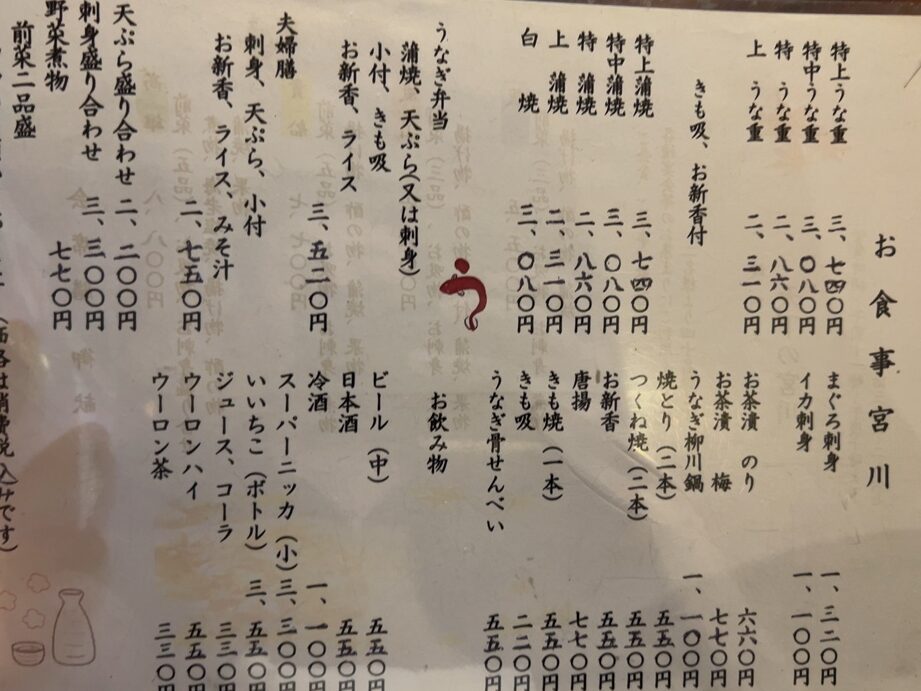 お食事 宮川
特上うな重 三、七四〇円
特中うな重 三、〇八〇円
特 うな重 二、八六〇円
上 うな重 二、三一〇円
きも吸、お新香付
特上蒲焼 三、七四〇円
特中蒲焼 三、〇八〇円
特 蒲焼 二、八六〇円
上 蒲焼 二、三一〇円
白 焼 三、〇八〇円
う
うなぎ弁当
蒲焼、天ぷら(又は刺身)
小付、きも吸
お新香、ライス 三、五二〇円
夫婦膳
刺身、天ぷら、小付
お新香、ライス、みそ汁 二、七五〇円
天ぷら盛り合わせ 二、二〇〇円
刺身盛り合わせ 三、三〇〇円
野菜煮物 七七〇円
前菜二品盛
まぐろ刺身 一、三二〇円
イカ刺身 一、一〇〇円
お茶漬 のり 六六〇円
お茶漬 梅 七七〇円
うなぎ柳川鍋 一、一〇〇円
焼とり(二本) 五五〇円
つくね焼(二本) 五五〇円
お新香 五五〇円
唐揚 七七〇円
きも焼(一本) 五五〇円
きも吸 二二〇円
うなぎ骨せんべい 五五〇円
お飲み物
ビール(中) 五五〇円
日本酒 五五〇円
冷酒 一、一〇〇円
スーパーニッカ(小) 三、三〇〇円
いいちこ(ボトル) 三、五五〇円
ジュース、コーラ 三三〇円
ウーロンハイ 五五〇円
ウーロン茶 三三〇円
(価格は消費税込みです)